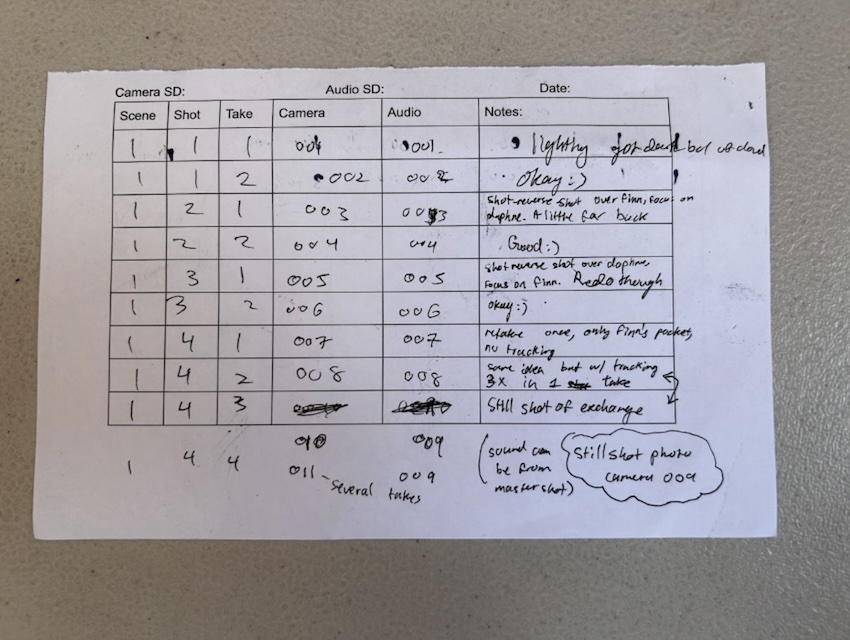 Camera SD: Audio SD: Date:
Scene Shot Take Camera Audio Notes:
1 1 1 001 001 lighting got dark but
1 1 2 002 002 okay:)
1 2 1 003 003 shot-reverse shot over finn, focus on
daphne. A little far back
1 2 2 004 004 Good:)
1 3 1 005 005 shot reverse shot over daphne,
focus on finn. Redo though
1 3 2 006 006 okay:)
1 4 1 007 007 retake once, only Finn's pocket,
no tracking
1 4 2 008 008 same idea but w/ tracking
3x in 1 take
1 4 3 Still shot of exchange
010 009
1 4 4 011 - several takes 009
(sound can
be from
master shot)
Still shot photo
camera 009